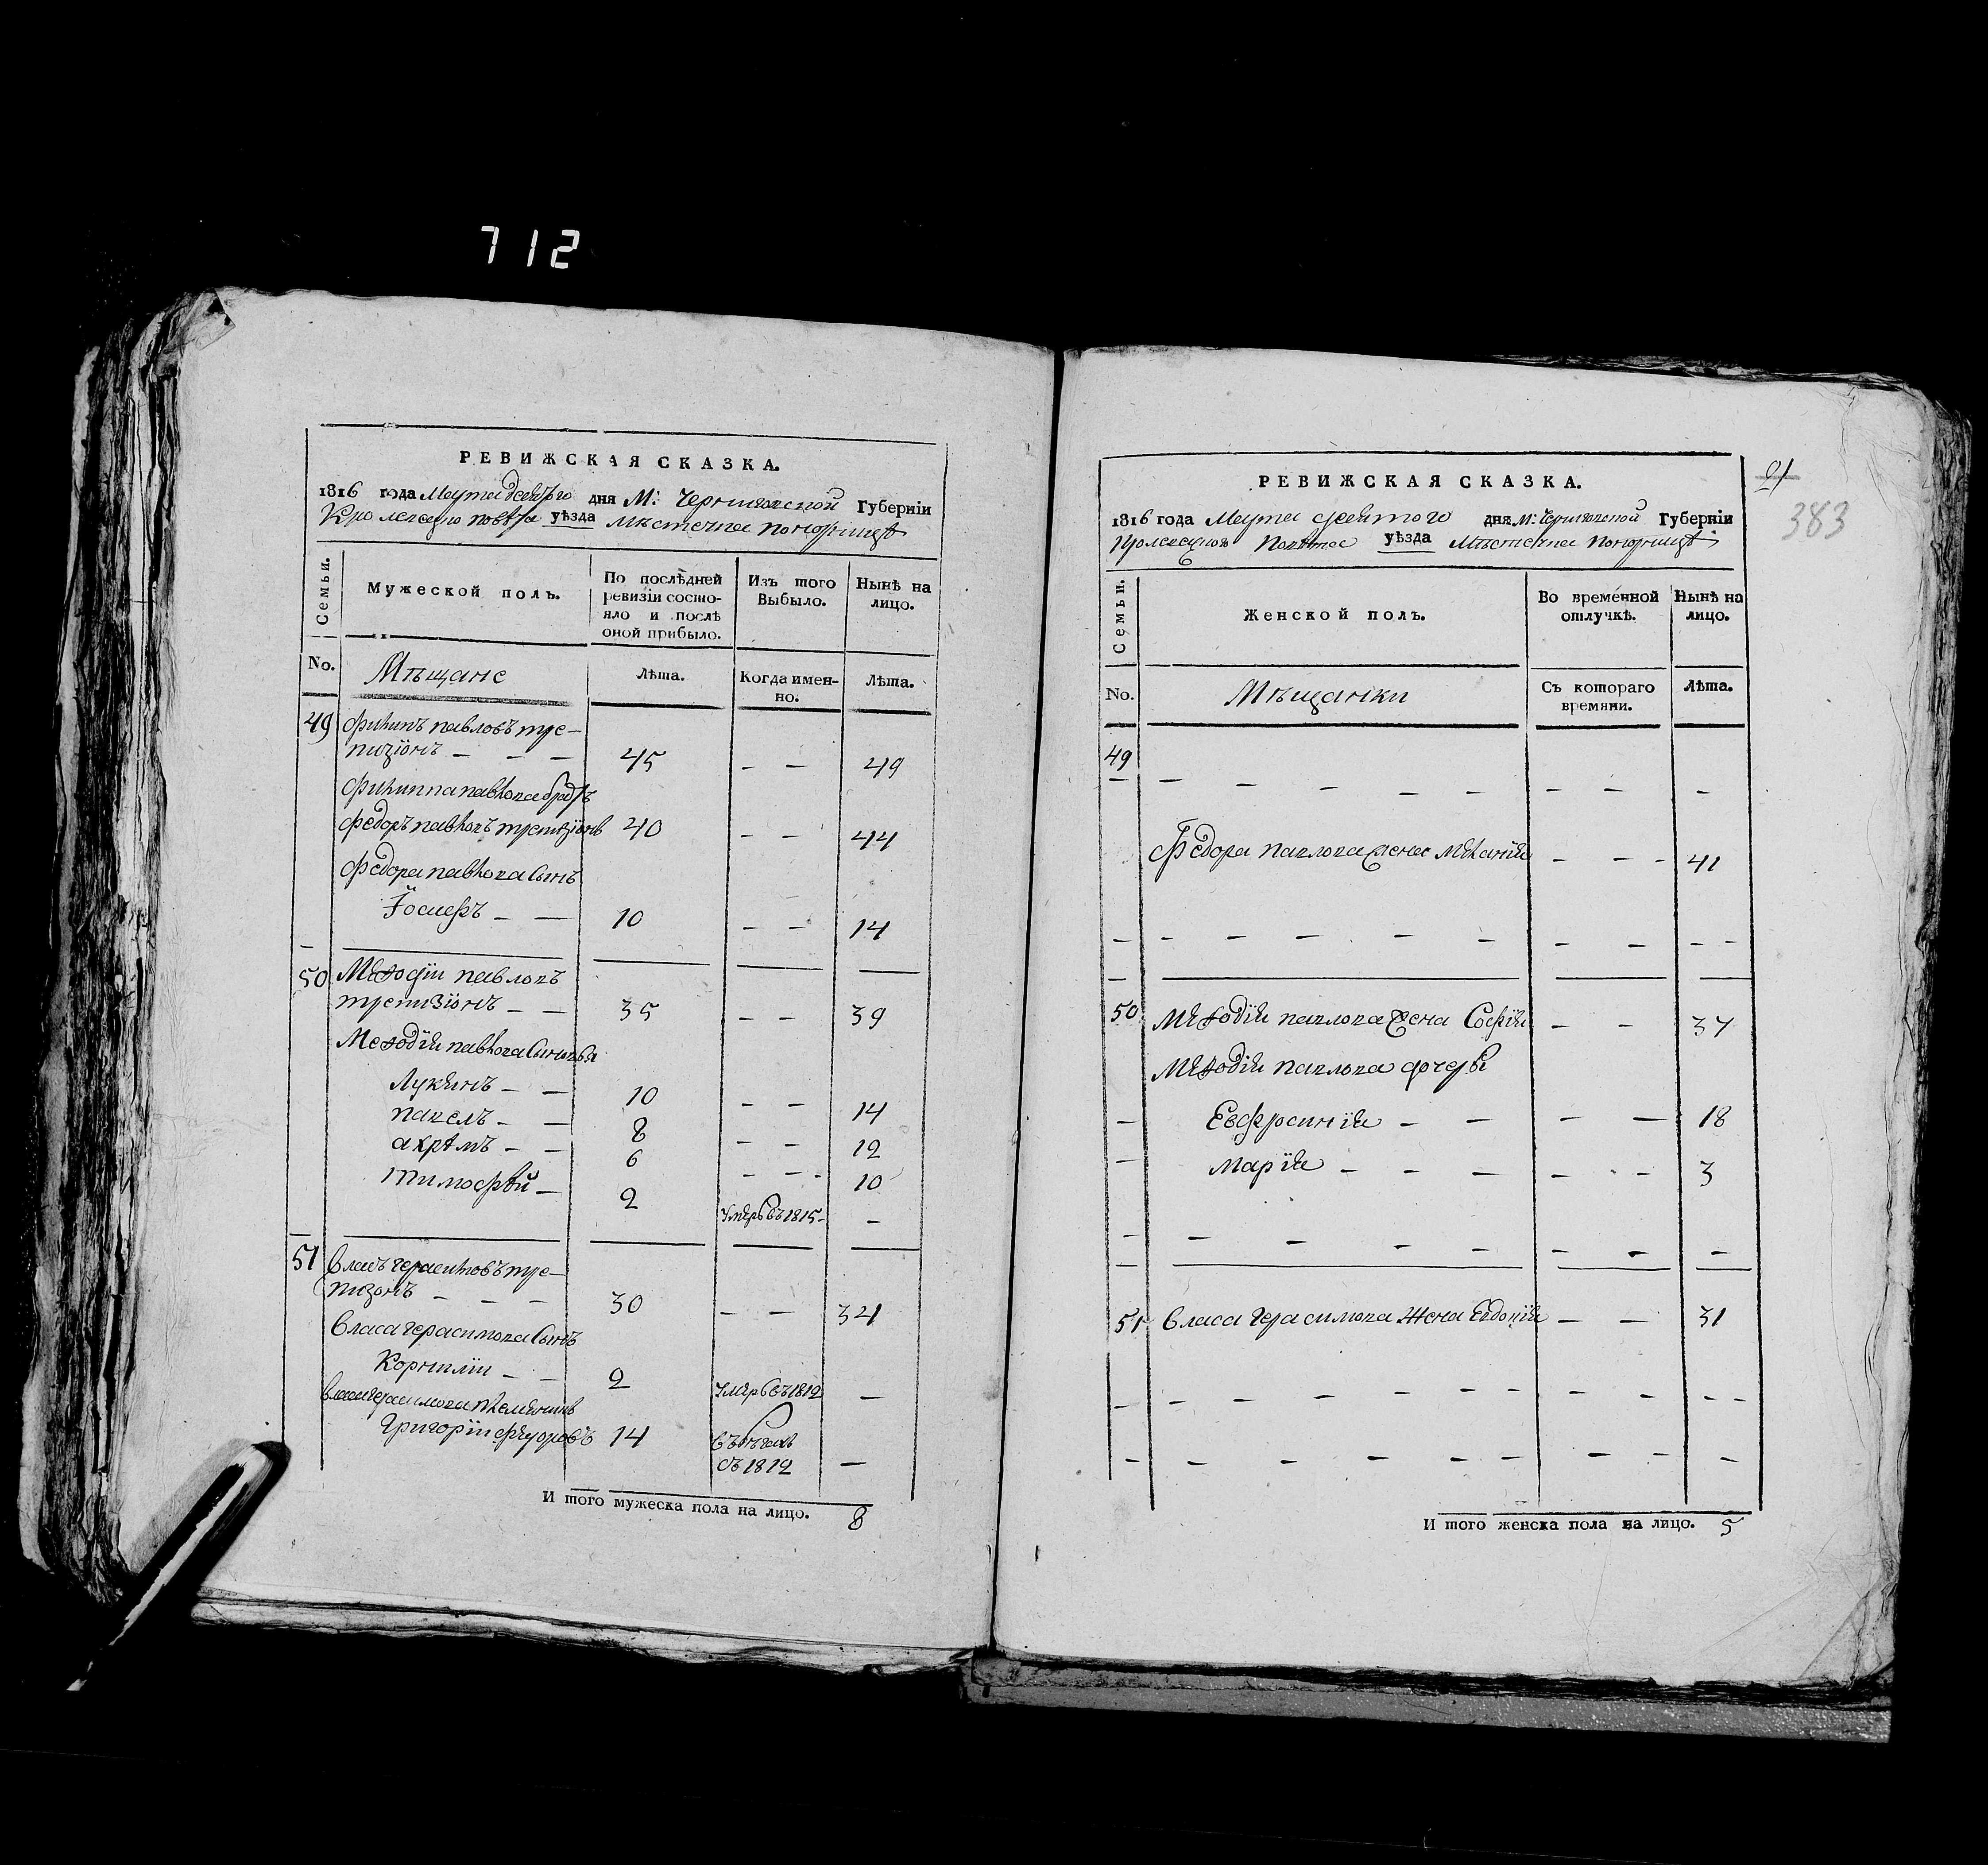 712
РЕВИЖСКАЯ СКАЗКА.
1816 года Марта девятого дня М: Черниговской Губерніи
Кролевецко повѣта уѣзда Мѣстечка Понорницѣ
Семьи.
Мужеской полъ.
По послѣдней ревизіи состояло и послѣ оной прибыло.
Изъ того Выбыло.
Нынѣ на лицо.
No.
Мѣщане
Лѣта.
Когда именно.
Лѣта.
49 Филипъ павловъ тре-
пизіонъ — — — 45 — — 49
Филиппа павлова братъ
Федоръ павловъ трепизіонъ 40 — — 44
Федора павлова Сынъ
Іосифъ — — 10 — — 14
50 Меѳодіи павловъ
трепизіонъ — — 35 — — 39
Меѳодія павлова Сыновья
Лукянъ — — 10 — — 14
павелъ — — 8 — — 12
ахрѣмъ — — 6 — — 10
тимофѣй — 2 Умеръ въ 1815 — —
51 Власъ герасимовъ тре-
пизонъ — — — 30 — — 34
Власа герасимова Сынъ
Корниліи — — 2 Умеръ въ 1812 —
Власа герасимова племянникъ
Григоріи федоровъ 14 въ бѣгахъ
съ 1812 —
И того мужеска пола на лицо. 8
21
383
РЕВИЖСКАЯ СКАЗКА.
1816 года Марта девятого дня М: Черниговской Губерніи
Кролевецкого Повѣта уѣзда Мѣстечка Понорницѣ
Семьи.
Женской полъ.
Во временной отлучкѣ.
Нынѣ на лицо.
No.
Мѣщанки
Съ котораго времяни.
Лѣта.
49
— — — — — — — —
Федора павлова жена Меланія — — - 41
— — — — — — — - -
50 Меѳодія павлова Жена Софія — — 37
Меѳодія павлова дочери
— Евфросинія — — — — 18
— Марія — — — — - - 3
— — — — — — — —
51 Власа герасимова Жена Евдокія — — 31
— — — — — - - — — - -
— — — — — — — — —
И того женска пола на лицо. 5